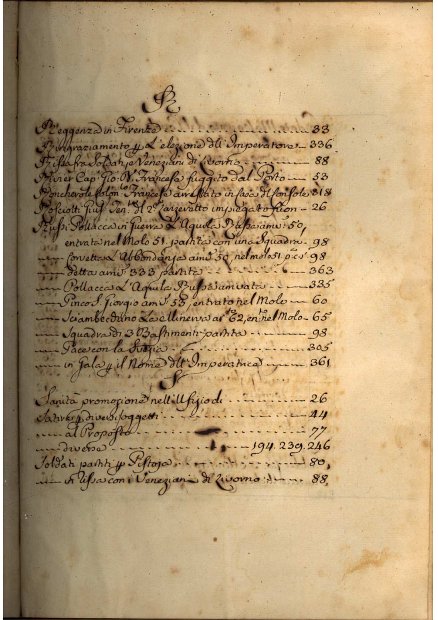 R
Reggenza in Firenze 33
Ringraziamento p l'elezione dell Imperatore 336
Rissa fra Soldati e Veneziani di Livorno 88
River Cap.º Gio. V. Francese fuggito dal Porto 53
Francese arrestato in casa del Console 318
Rosciotti Ten. del Lazzeretto impiegato fuori 26
Russi Pollacca in guerra L'Aquila 50,
entrata nel Molo 51 partita con una Squadra 98
Corvetta L'Abbondanza 50 nel molo 51 p. 98
detta 333 partita 363
Pollacca L'Aquila Russa arrivata 335
Pinco S. Giorgio 58, entrato nel Molo 60
Sciambecchino La Minerva 62, ent. nel Molo 65
Squadra di 3 Bastimenti partita 98
Pace con la 305
in gala p il Nome dell Imperatrice 361
S
Sanità promozione nell'Ufizio di 26
Satire p diversi soggetti 44
al Proposto 77
diverse 194. 239. 246
Soldati partiti p Pistoja 80
in Rissa con i Veneziani di Livorno 88